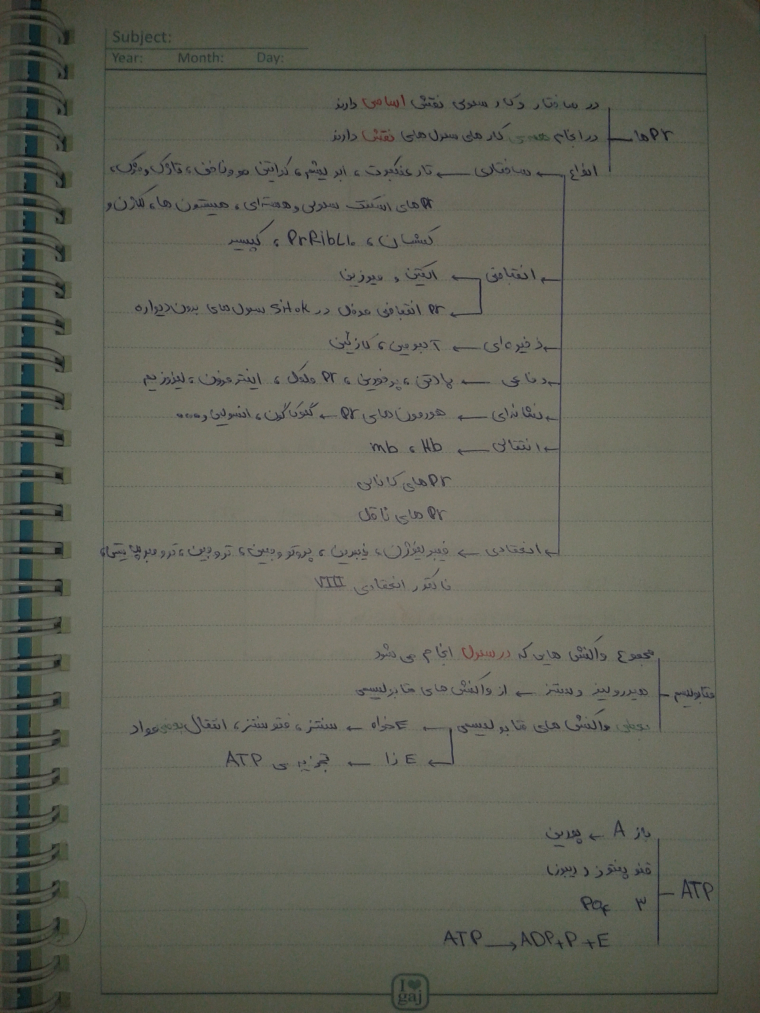 Subject:
Year: Month: Day:
در ساختار و کار سلولی نقش اساسی دارند
Pr ها
در انجام همه‌ی کارهای سلول‌های نقش دارند
انواع ← ساختاری ← تار عنکبوت، ابریشم، کراتین مو و ناخن، تاژک و مژک،
Pr های اسکلت سلولی و هسته‌ای، هیستون ها، کلاژن و
کشسان، PrRibLI، کپسید
انقباضی ← اکتین و میوزین
Pr انقباضی در سلول‌های بدون دیواره
ذخیره‌ای ← آلبومین، کازئین
دفاعی ← پادتن، پرفورین، Pr مکمل، اینترفرون، لیزوزیم
نشانه‌ای ← هورمون های Pr ← گلوکاگون، انسولین و...
انتقالی ← Hb، mb
Pr های کانالی
Pr های ناقل
انعقادی ← فیبرینوژن، فیبرین، پروترومبین، ترومبین، ترومبوپلاستین،
فاکتور انعقادی VIII
مجموع واکنش هایی که در سلول انجام می شود
متابولیسم
هیدرولیز و سنتز ← از واکنش های متابولیسمی
بعضی واکنش های متابولیسمی ← E خواه ← سنتز، فتوسنتز، انتقال بعضی مواد
E زا ← تجزیه ی ATP
باز A ← پورین
قند پنتوز (ریبوز)
ATP
۳ PO₄
ATP → ADP + P + E
I ♥ gaj